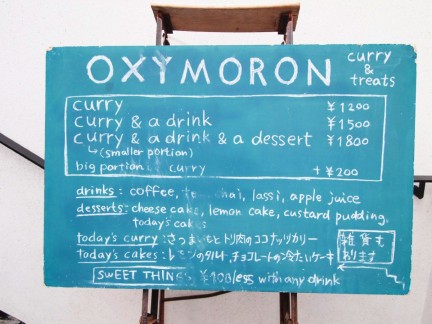 OXYMORON
curry
&
treats
curry ¥1200
curry & a drink ¥1500
curry & a drink & a dessert ¥1800
(smaller portion)
big portion curry +¥200
drinks: coffee, chai, lassi, apple juice
desserts: cheese cake, lemon cake, custard pudding,
today's cake
today's curry: さつまいもとトリ肉のココナッツカリー
today's cakes: レモンのタルト・チョコレートの冷たいケーキ
雑貨も
あります
SWEET THING ¥100 less with any drink